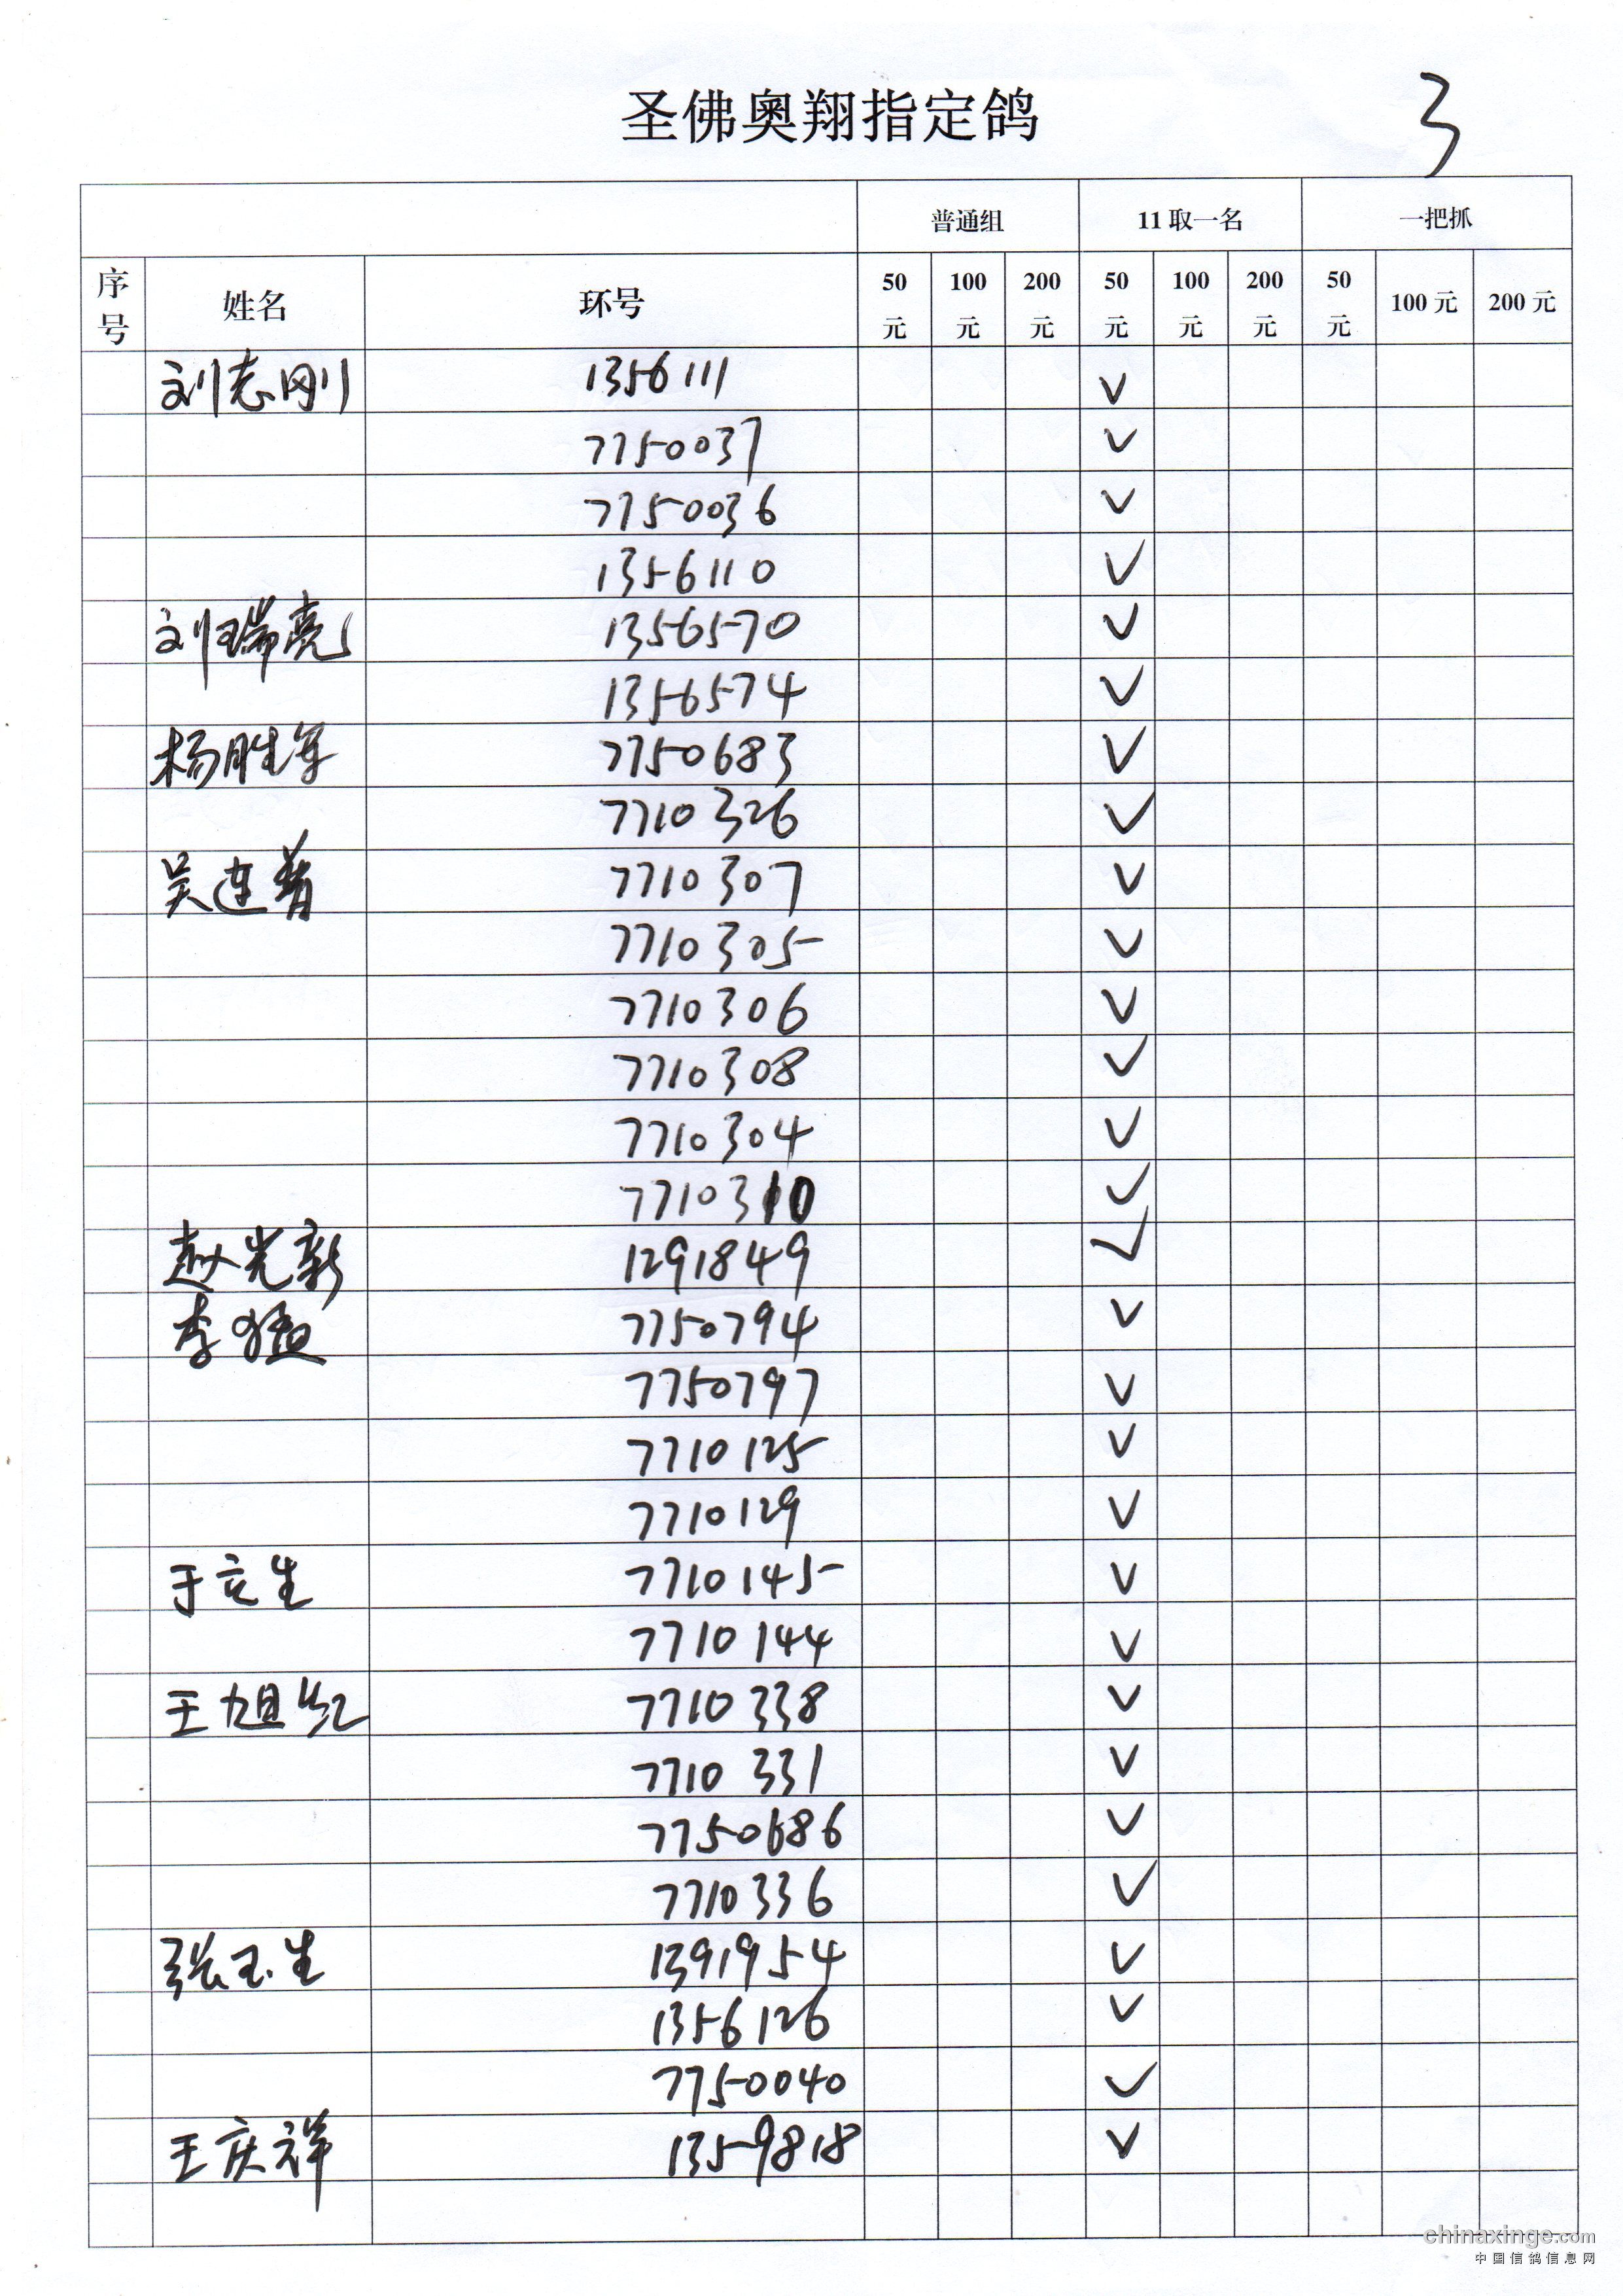 圣佛奥翔指定鸽
3
普通组 11取一名 一把抓
序号 姓名 环号 50元 100元 200元 50元 100元 200元 50元 100元 200元
刘志刚 1356111 ✓
7750037 ✓
7750036 ✓
1356110 ✓
刘瑞亮 1356570 ✓
1356574 ✓
杨胜军 7750683 ✓
7710326 ✓
吴连普 7710307 ✓
7710305 ✓
7710306 ✓
7710308 ✓
7710304 ✓
7710310 ✓
赵光新 1291849 ✓
李猛 7750794 ✓
7750797 ✓
7710125 ✓
7710129 ✓
于立生 7710145 ✓
7710144 ✓
王旭红 7710338 ✓
7710331 ✓
7750686 ✓
7710336 ✓
张玉生 1391954 ✓
1356126 ✓
7750040 ✓
王庆祥 1359818 ✓
chinaxinge.com
中国信鸽信息网